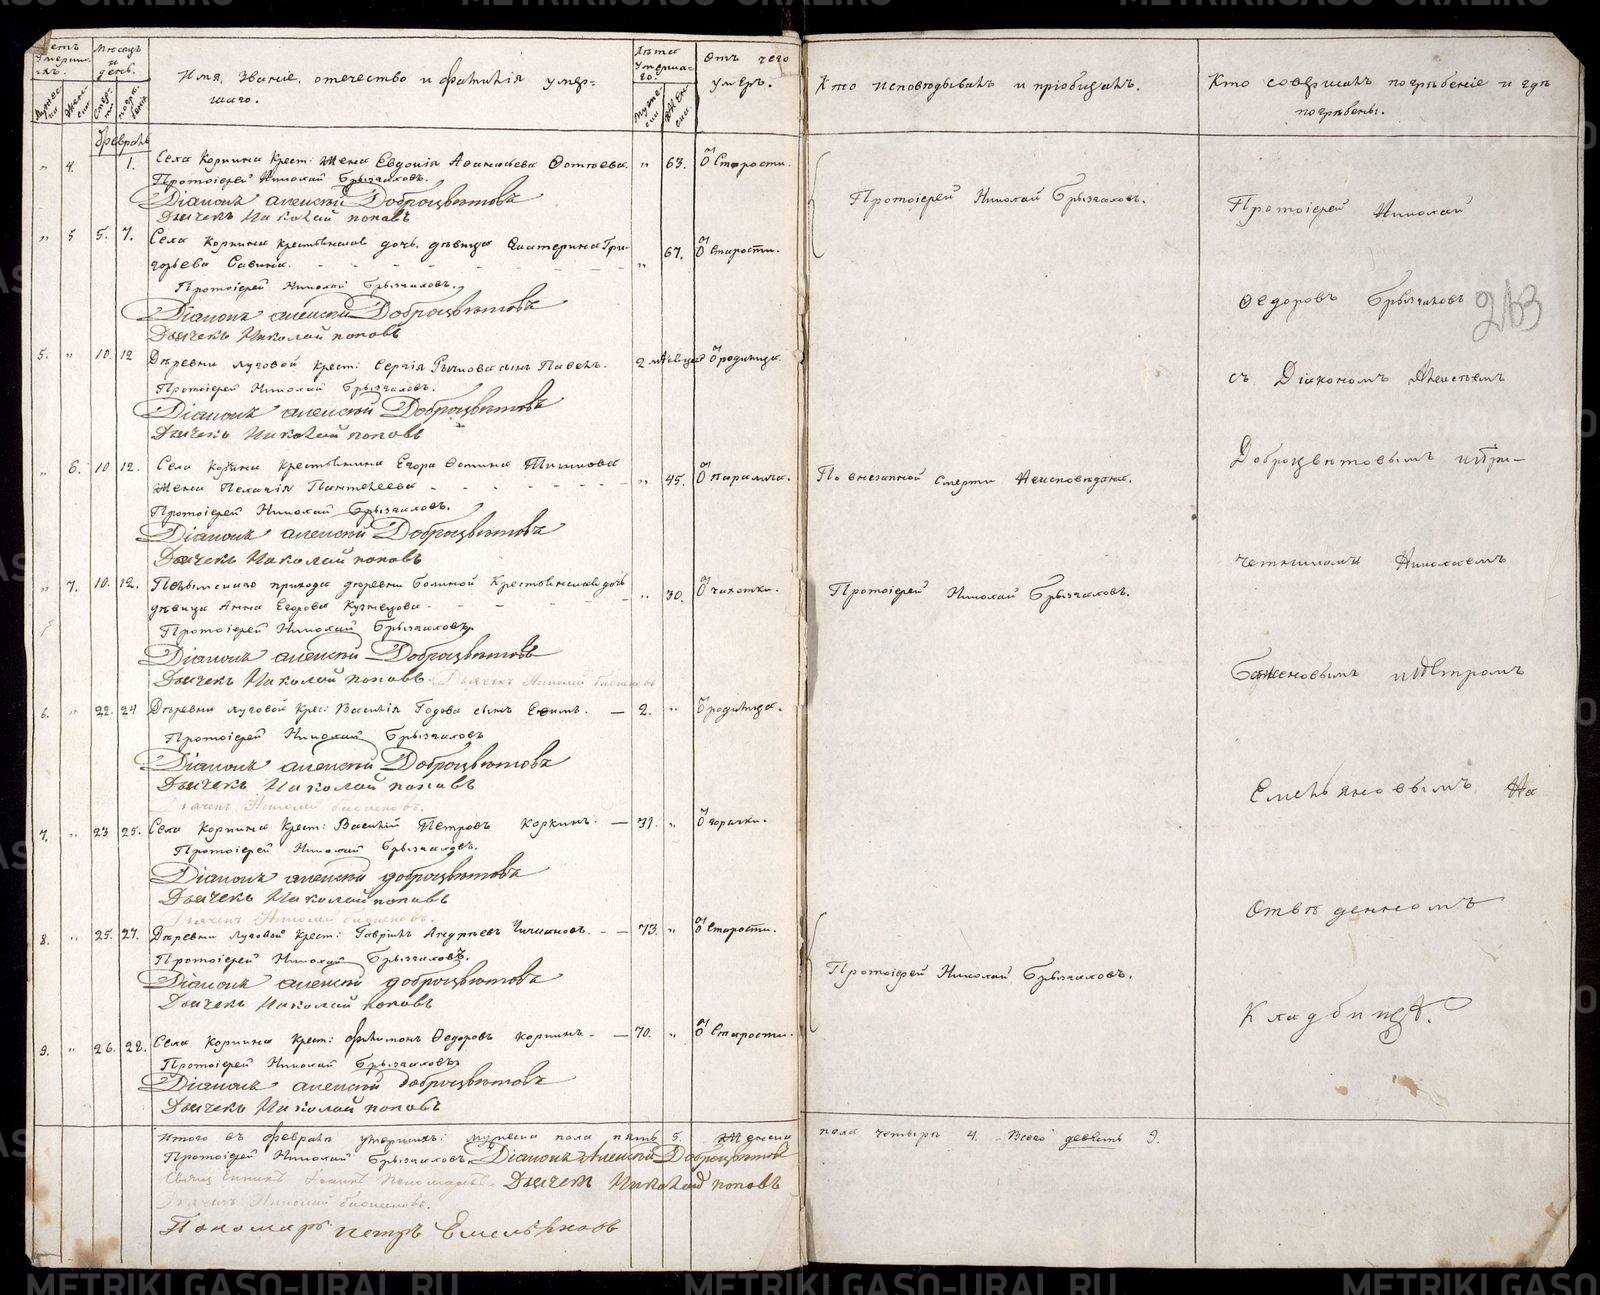 Счетъ умершихъ.
Мѣсяцъ и день.
Имя, званіе, отечество и фамилія умер-
шаго.
Лѣта умершаго.
Отъ чего умеръ.
Кто исповѣдывалъ и пріобщалъ.
Кто совершалъ погребеніе и гдѣ
погребены.
Февраль
" 4. 1. Села Коркина Крест: Жена Евдокія Аѳанасьева Фотѣева. " 63. Ӧ Старости.
Протоіерей Николай Брызгаловъ.
Діаконъ алексѣй Доброцвѣтовъ
Дьячекъ Николай поповъ
" 5 5. 7. Села Коркина крестьянская дочь, дѣвица Екатерина Гри-
горьева Савина. " 67. Ӧ Старости.
Протоіерей Николай Брызгаловъ.
Діаконъ алексѣй Доброцвѣтовъ
Дьячекъ Николай поповъ
5. " 10. 12 Деревни Луговой Крест: Сергія Рычкова сынъ Павелъ. 2 мѣсяца Ӧ родимца.
Протоіерей Николай Брызгаловъ.
Діаконъ алексѣй Доброцвѣтовъ
Дьячекъ Николай поповъ
" 6. 10 12. Села Коркина Крестьянина Егора Фотина
Жена Пелагія Пантелеева " 45. Ӧ паралича.
Протоіерей Николай Брызгаловъ.
Діаконъ алексѣй Доброцвѣтовъ
Дьячекъ Николай поповъ
" 7. 10. 12. прихода деревни Крестьянская дочь
дѣвица Анна Егорова Кузнецова. " 30. Ӧ чахотки.
Протоіерей Николай Брызгаловъ.
Діаконъ алексѣй Доброцвѣтовъ
Дьячекъ Николай поповъ Дьячекъ Николай
6. " 22. 24 Деревни Луговой Крес: Василія Годова сынъ Ефимъ. 2. " Ӧ родимца.
Протоіерей Николай Брызгаловъ
Діаконъ алексѣй Доброцвѣтовъ
Дьячекъ Николай поповъ
Дьячекъ Николай
7. " 23 25. Села Коркина Крест: Василій Петровъ Коркинъ. 31. " Ӧ горячки.
Протоіерей Николай Брызгаловъ.
Діаконъ алексѣй доброцвѣтовъ
Дьячекъ Николай поповъ
Дьячекъ Николай
8. " 25. 27. Деревни Луговой Крест: Гавріилъ Андреевъ 73. " Ӧ Старости.
Протоіерей Николай Брызгаловъ.
Діаконъ алексѣй доброцвѣтовъ
Дьячекъ Николай поповъ
9. " 26. 28. Села Коркина Крест: Филимонъ Ѳедоровъ Коркинъ. 70. " Ӧ Старости.
Протоіерей Николай Брызгаловъ
Діаконъ алексѣй доброцвѣтовъ
Дьячекъ Николай поповъ
Итого въ Февралѣ умершихъ: мужеска пола пять 5. Женска
Протоіерей Николай Брызгаловъ Діаконъ Алексѣй Доброцвѣтовъ
Дьячекъ Николай поповъ
Дьячекъ Николай
Пономарь петръ Емельяновъ
Протоіерей Николай Брызгаловъ.
По внезапной смерти Неисповѣдана.
Протоіерей Николай Брызгаловъ.
Протоіерей Николай Брызгаловъ.
пола четыре 4. Всего девять 9.
Протоіерей Николай
Ѳедоровъ Брызгаловъ
263
съ Діакономъ Алексѣемъ
Доброцвѣтовымъ и При-
четниками Николаемъ
Баженовымъ и Петромъ
Емельяновымъ На
Отведенномъ
Кладбищѣ.
METRIKI.GASO-URAL.RU